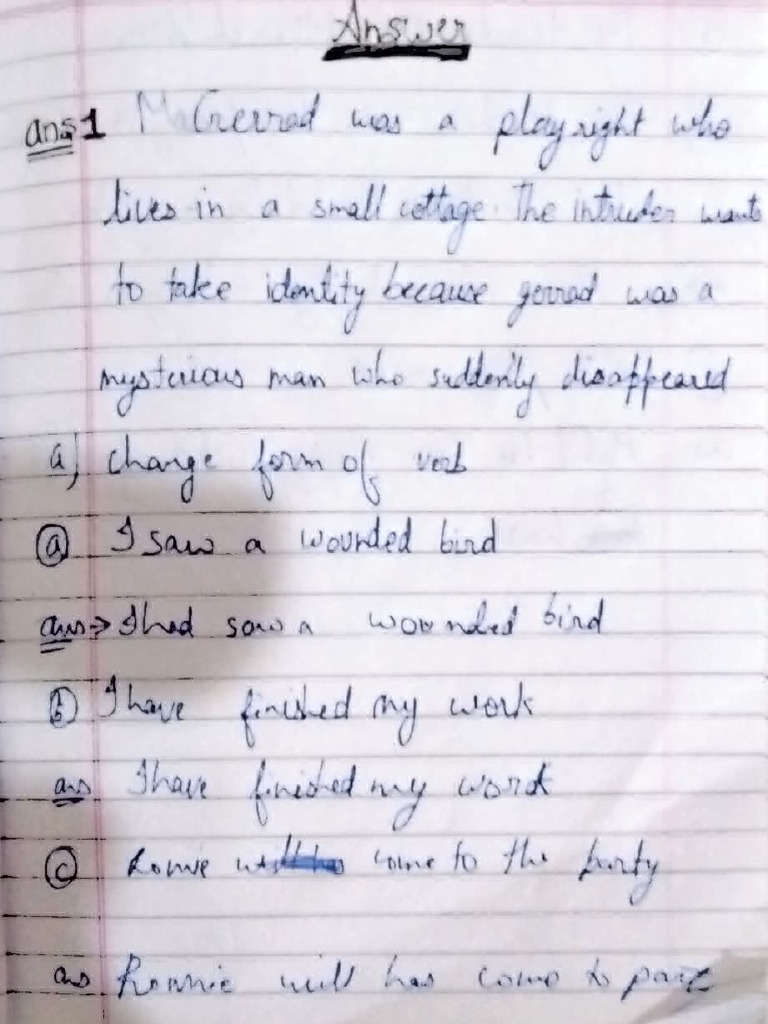 Answer
ans 1 Mr Gerrad was a playright who
lives in a small cottage. The intruder wants
to take identity because gerrad was a
mysterious man who suddenly disappeared
a) change form of verb
(a) I saw a wounded bird
ans→ I had saw a wounded bird
(b) I have finished my work
ans I have finished my work
(c) Ronnie will come to the party
ans Ronnie will has come to